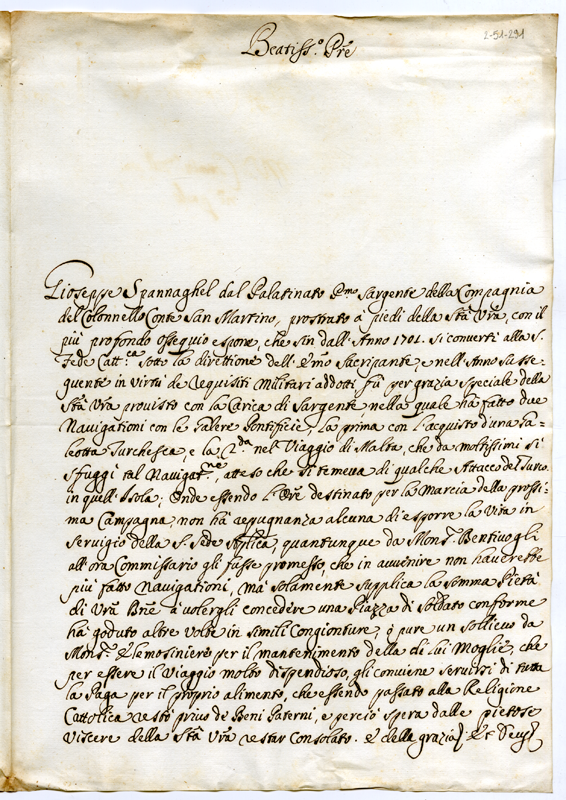 Beatiss.º Prẽ
2-51-291
Gioseppe Spannaghel dal Palatinato P.mo Sargente della Compagnia
del Colonnello Conte San Martino, prostrato a piedi della Stà Vrã, con il
più profondo ossequio espone, che sin dall'Anno 1701. si convertì alla S.
Fede Catt.ca sotto la direttione dell'E.mo Sacripante, e nell'Anno susse-
guente in virtù de requisiti Militari addotti fù per grazia speciale della
Stà Vrã provisto con la Carica di Sargente nella quale hà fatto due
Navigationi con le Galere Pontificie, La prima con l'acquisto d'una Ga-
leotta Turchesca, e la 2.da nel Viaggio di Malta, che da moltissimi si
sfuggì tal Navigat.ne, atteso che si temeva di qualche Attacco del Turco
in quell'Isola; Onde essendo l'Orẽ destinato per la Marcia della prossi-
ma Campagna, non hà repugnanza alcuna di esporre la Vita in
servigio della S. Sede Apľica, quantunque da Mons.r Bentivogli
all'ora Commissario gli fusse promesso, che in avvenire non haverebbe
più fatto Navigationi, mà solamente supplica la somma Pietà
di Vrã Bne. à volergli concedere una Piazza di Soldato conforme
hà goduto altre volte in simili Congionture, ò pure un sollievo da
Mons.r Elemosiniere per il mantenimento della di lui Moglie, che
per essere il Viaggio molto dispendioso, gli conviene servirsi di tutta
la Paga per il proprio alimento, che essendo passato alla Religione
Cattolica restò privo de Beni Paterni, e perciò spera dalle pietose
viscere della Stà Vrã restar consolato. E della grazia